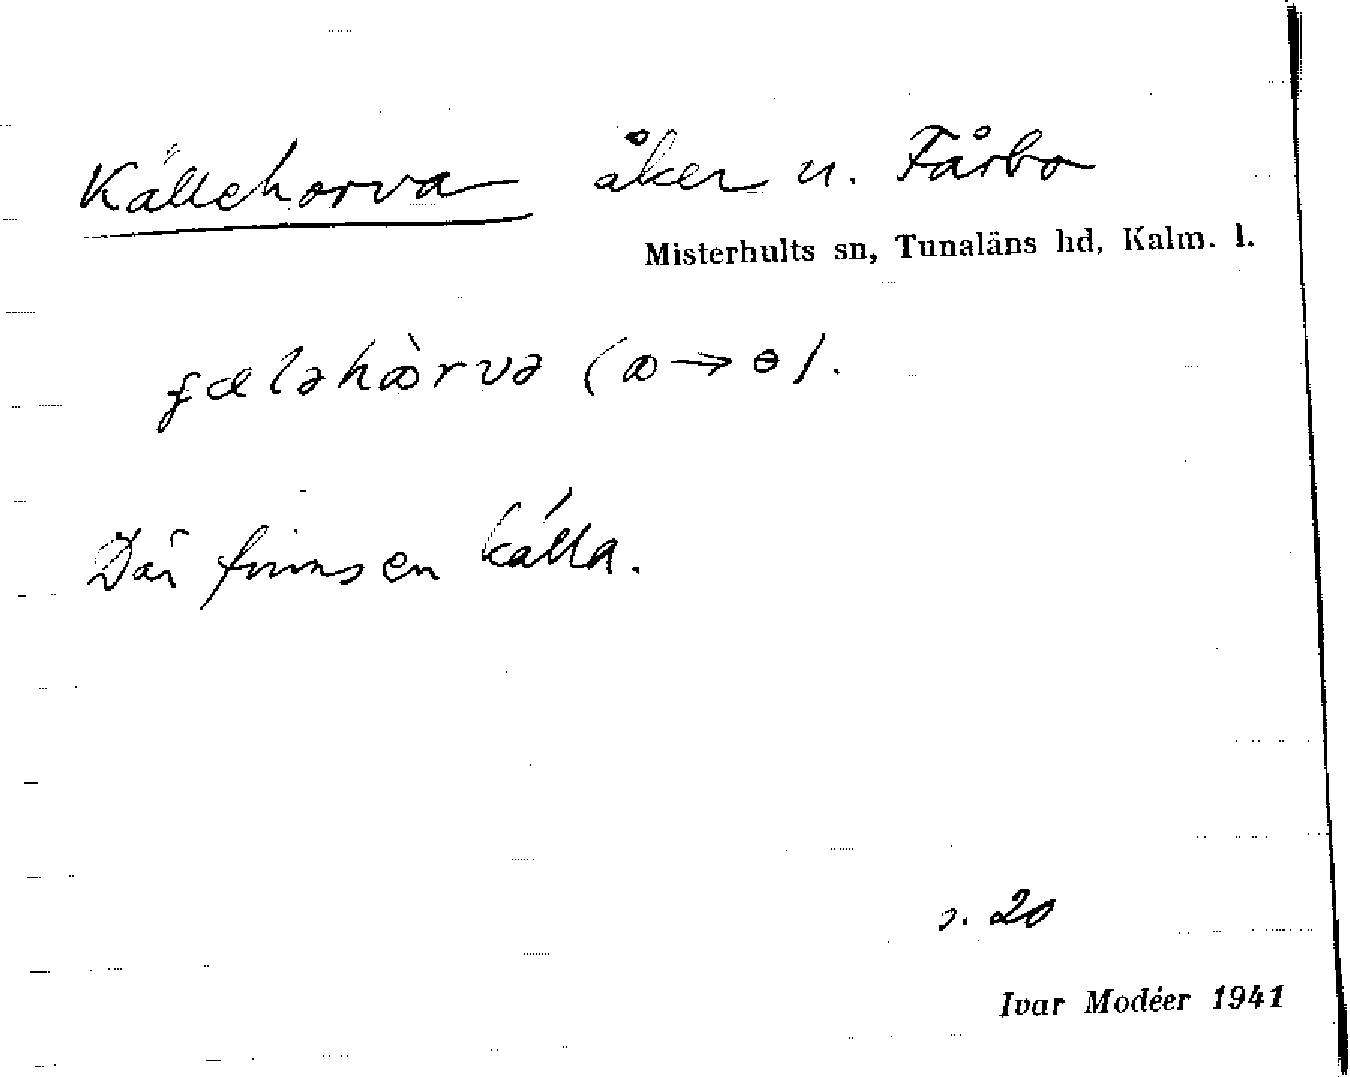 Källehorva åker u. Fårbo
Misterhults sn, Tunaläns hd, Kalm. l.
ꞙæləhꝏ̀rvə (ꝏ→ɵ).
Där finns en källa.
s. 20
Ivar Modéer 1941